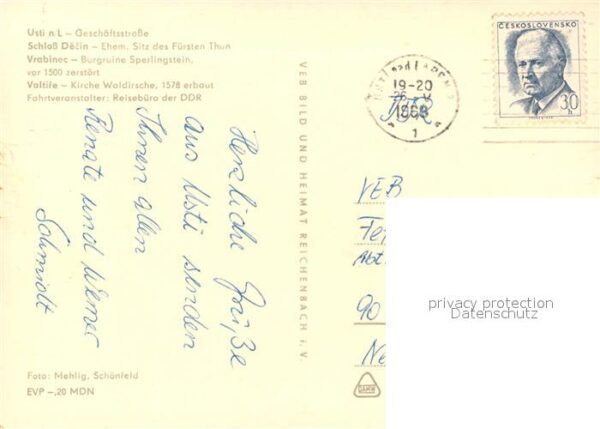 Usti n L – Geschäftsstraße
Schloß Děčin – Ehem. Sitz des Fürsten Thun
Vrabinec – Burgruine Sperlingstein,
vor 1500 zerstört
Valtiře – Kirche Waldirsche, 1578 erbaut
Fahrtveranstalter: Reisebüro der DDR
Herzliche Grüße
aus Usti senden
Ihnen allen
Renate und Werner
Schmidt
Foto: Mehlig, Schönfeld
EVP –,20 MDN
VEB BILD UND HEIMAT REICHENBACH i. V.
19-20
26. V.
1968
1
ČESKOSLOVENSKO
30
h
VEB
Abt.
90
privacy protection
Datenschutz